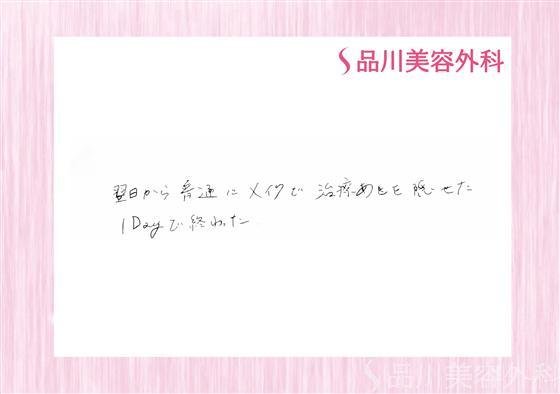 品川美容外科
翌日から普通にメイクで治療あとを隠せた
1Dayで終わった
品川美容外科